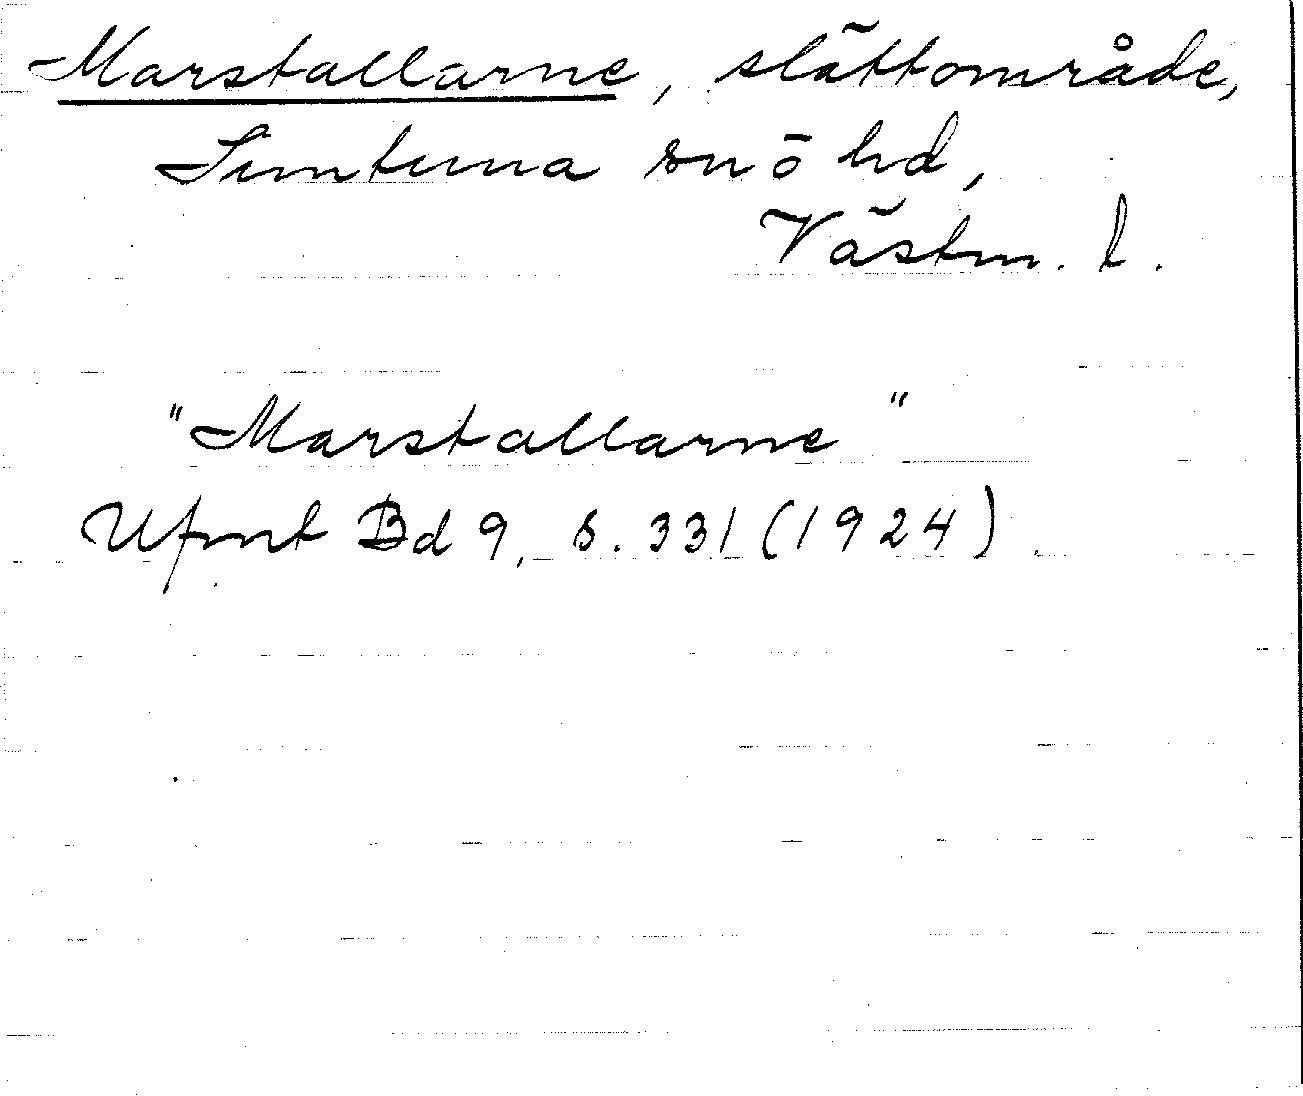 Marstallarne, slättområde,
Simtuna sn ō hd,
Västm. l.
"Marstallarne"
Ufmt Bd 9, s. 331 (1924)